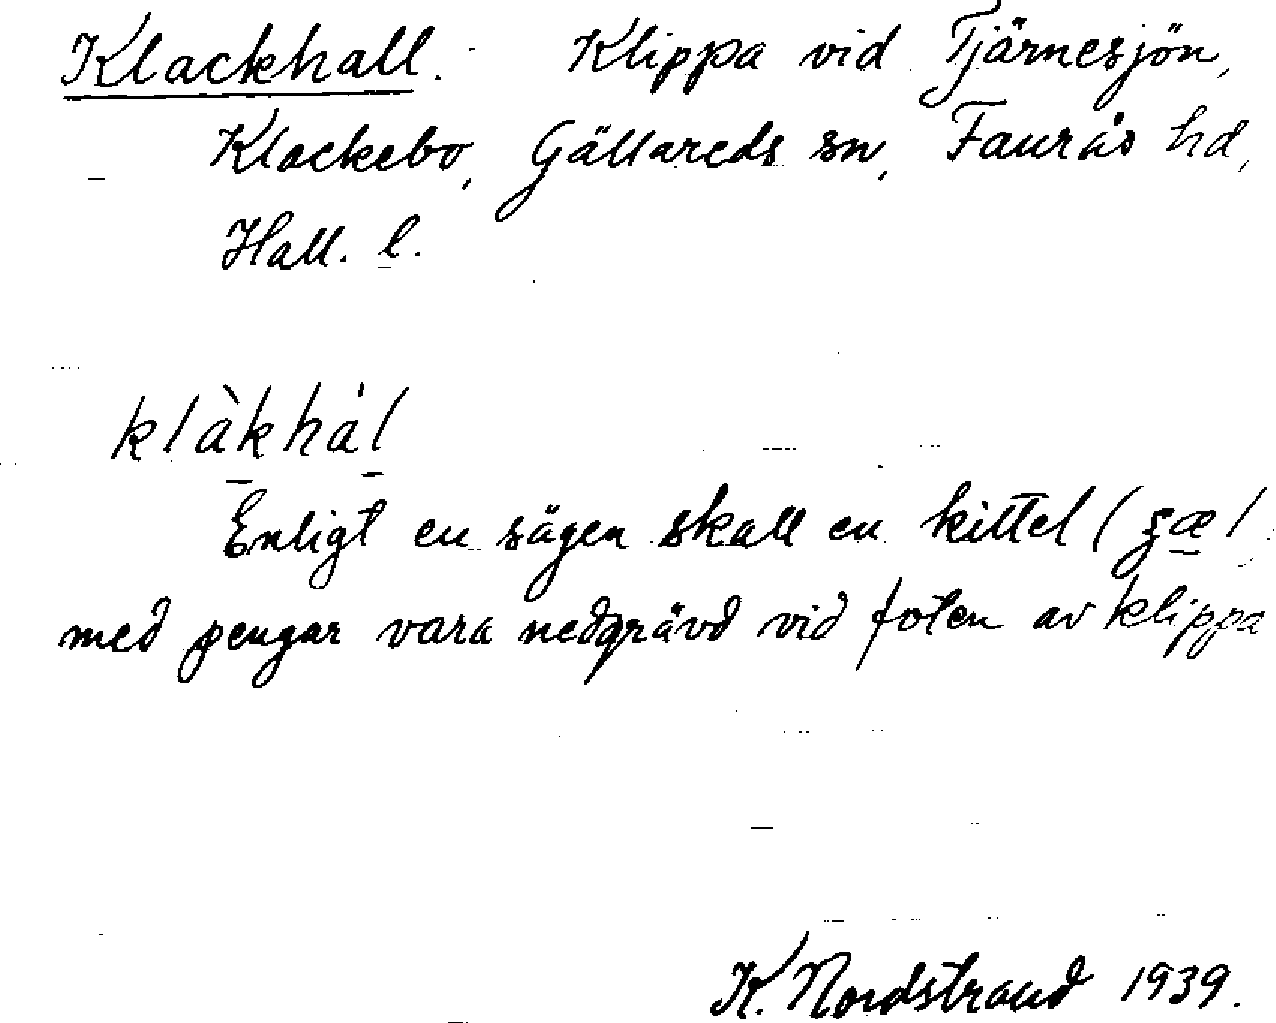 Klackhall. Klippa vid Tjärnesjön,
Klackebo, Gällareds sn, Faurås hd,
Hall. l.
klàkhál
Enligt en sägen skall en kittel (
med pengar vara nedgrävd vid foten av klippa
K. Nordstrand 1939.